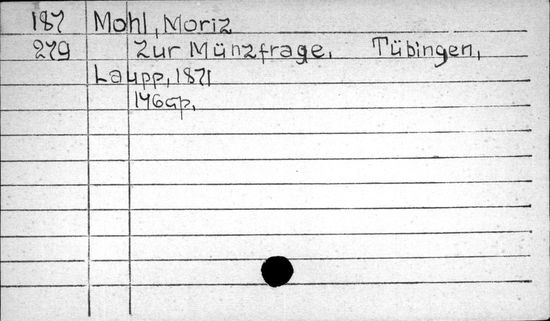 187 Mohl, Moriz
279 Zur Münzfrage. Tübingen,
Laupp, 1871
146 Sp.